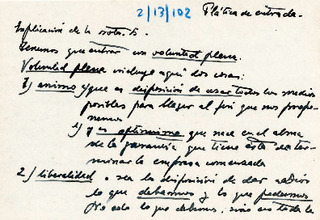 2/13/102 Plática de entrada.
Explicación de la nota 5.
Tenemos que entrar con voluntad plena.
Voluntad plena incluye aquí dos cosas:
1) animo y que es disposición de usar todos los medios
posibles para llegar al fin que nos propo-
nemos
y es optimismo que nace en el alma
de la garantía que tiene ésta de ter-
minar la empresa comenzada
2) liberalidad o sea la disposición de dar a Dios
lo que debamos y lo que podemos
No sólo lo que debemos, sino en toda la